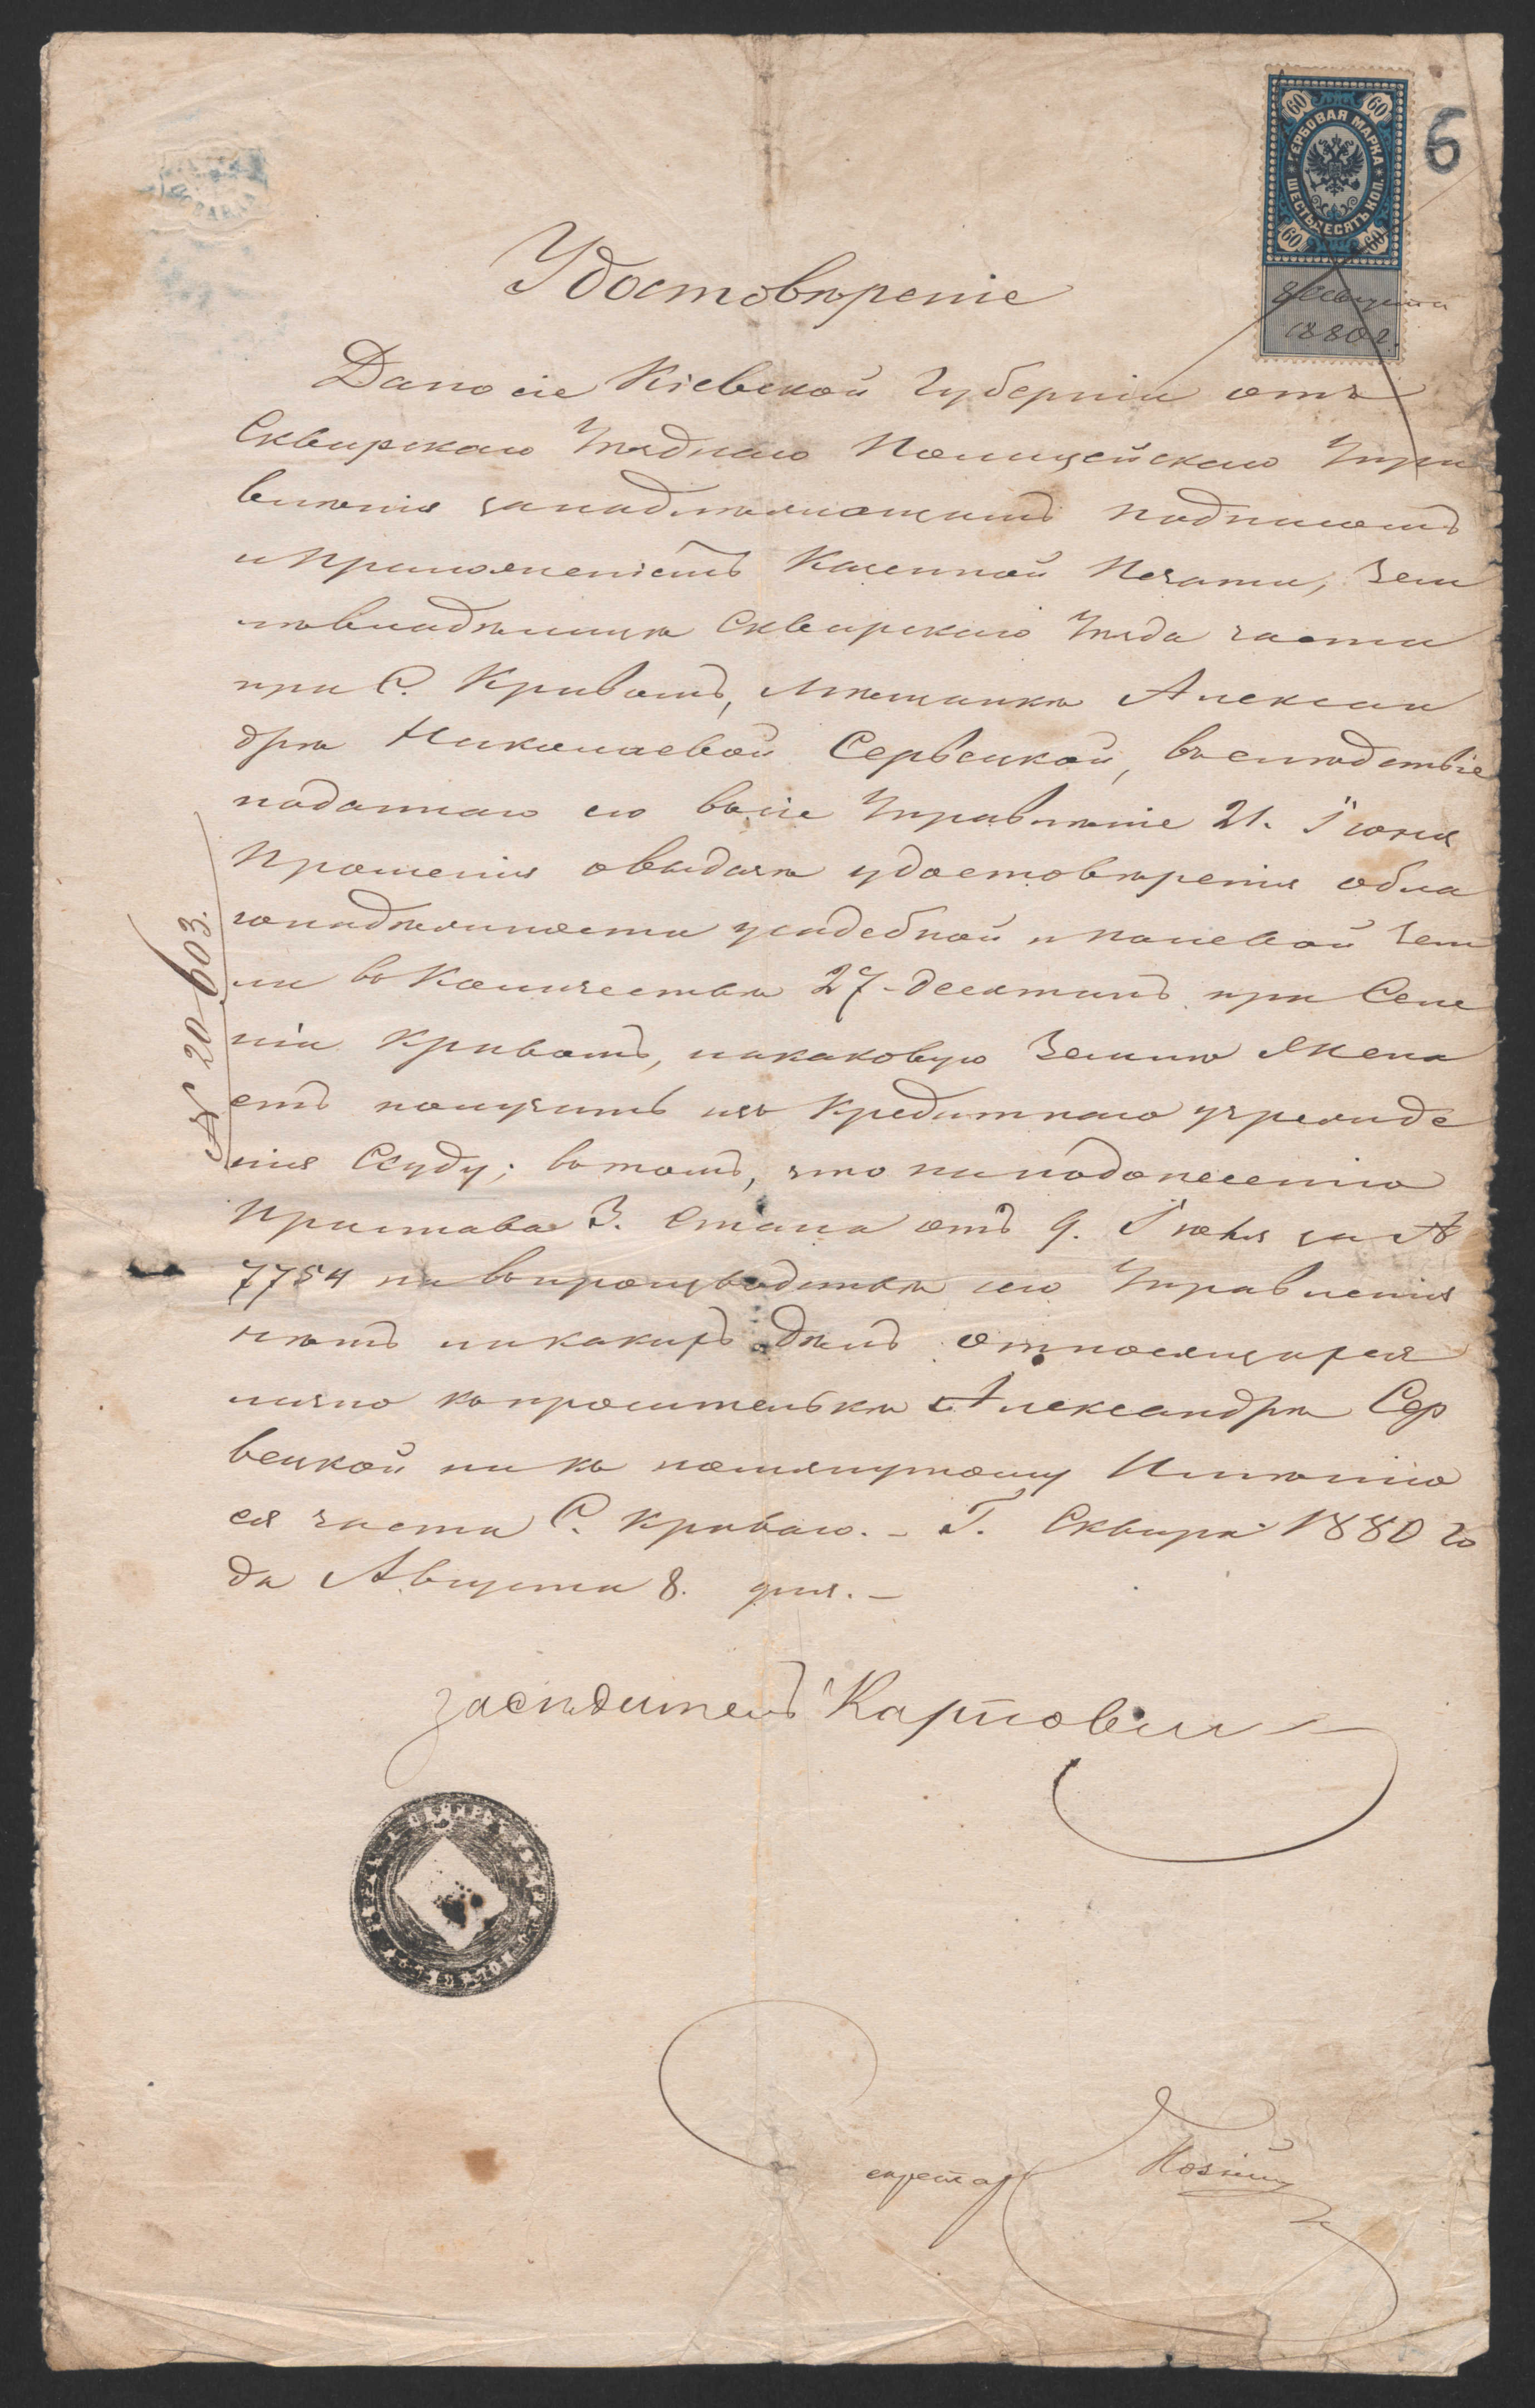 6
60 60
ГЕРБОВАЯ МАРКА
ШЕСТЬДЕСЯТЪ КОП.
60 60
8 Августа
1880 г.
Удостовѣреніе
Дано сіе Кіевской Губерніи отъ
Сквирскаго Уѣзднаго Полицейскаго Упра
вленія занадлежащимъ подписомъ
и приложеніемъ Казенной Печати, Зем
левладѣлицѣ Сквирскаго Уѣзда части
при С. Кривомъ, Мѣщанкѣ Алексан
дрѣ Николаевой Сервецкой, въслѣдствіе
поданнаго ею въ сіе Управленіе 21. Іюня
Прошенія о выдачѣ удостовѣренія обла
гонадежности усадебной и полевой Зем
ли въ Количествѣ 27 десятинъ при Селе
ніи Кривомъ, накаковую Землю Жела
етъ получить изъ Кредитнаго учрежде
нія Ссуду; въ томъ, что ни по донесенію
Пристава 3. Стана отъ 9. Іюля за №
7754 ни въ производствѣ сего Управленія
нѣтъ никакихъ дѣлъ относящихся
лично къ просительнѣ Александрѣ Сер
вецкой ни къ помянутому Имѣнію
ея части С. Криваго. – Г. Сквира 1880 го
да Августа 8. дня. –
№ 20603.
засѣдатель Карпович
секретарь